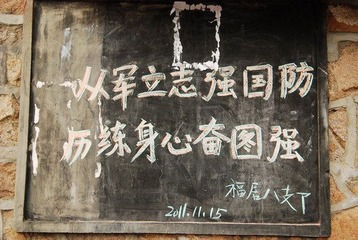 从军立志强国防
历练身心奋图强
福居八支了
2011.11.15